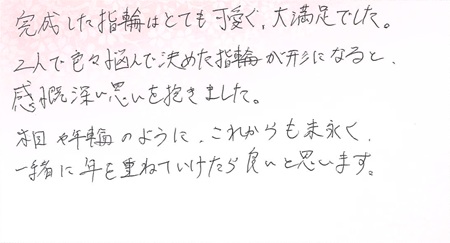 完成した指輪はとても可愛く、大満足でした。
2人で色々悩んで決めた指輪が形になると、
感慨深い思いを抱きました。
木目や年輪のように、これからも末永く、
一緒に年を重ねていけたら良いと思います。